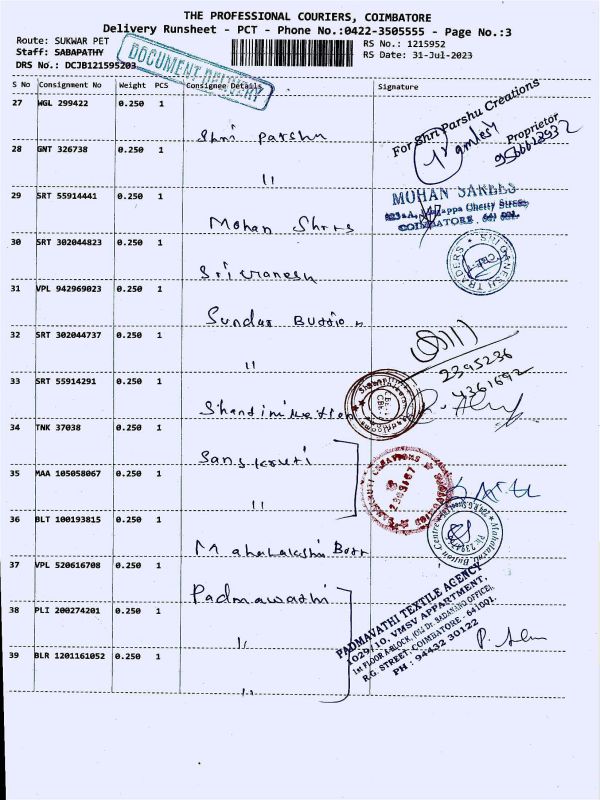 THE PROFESSIONAL COURIERS, COIMBATORE
Delivery Runsheet - PCT - Phone No.:0422-3505555 - Page No.:3
Route: SUKWAR PET
Staff: SABAPATHY
DRS No.: DCJB121595203
DOCUMENT DELIVERY
RS No.: 1215952
RS Date: 31-Jul-2023
S No Consignment No Weight PCS Consignee Details Signature
27 WGL 299422 0.250 1
Shri Parshu
For Shri Parshu Creations
Proprietor
28 GNT 326738 0.250 1
"
29 SRT 55914441 0.250 1
Mohan
MOHAN SAREES
COIMBATORE. 641 001.
30 SRT 302044823 0.250 1
Sri Ganesh
SRI GANESH TRADERS
31 VPL 942969023 0.250 1
Sundar Button
32 SRT 302044737 0.250 1
"
2395236
33 SRT 55914291 0.250 1
34 TNK 37038 0.250 1
Sanskruti
35 MAA 105058067 0.250 1
"
36 BLT 100193815 0.250 1
Mahalakshmi Button Centre
37 VPL 520616708 0.250 1
Padmawathi
38 PLI 200274201 0.250 1
"
PADMAVATHI TEXTILE AGENCY
1029/10, VMSV APPARTMENT,
1st FLOOR A-BLOCK, (OLd Dr. SADANAND OFFICE),
R.G. STREET, COIMBATORE - 641001.
PH : 94432 30122
39 BLR 1201161052 0.250 1
"